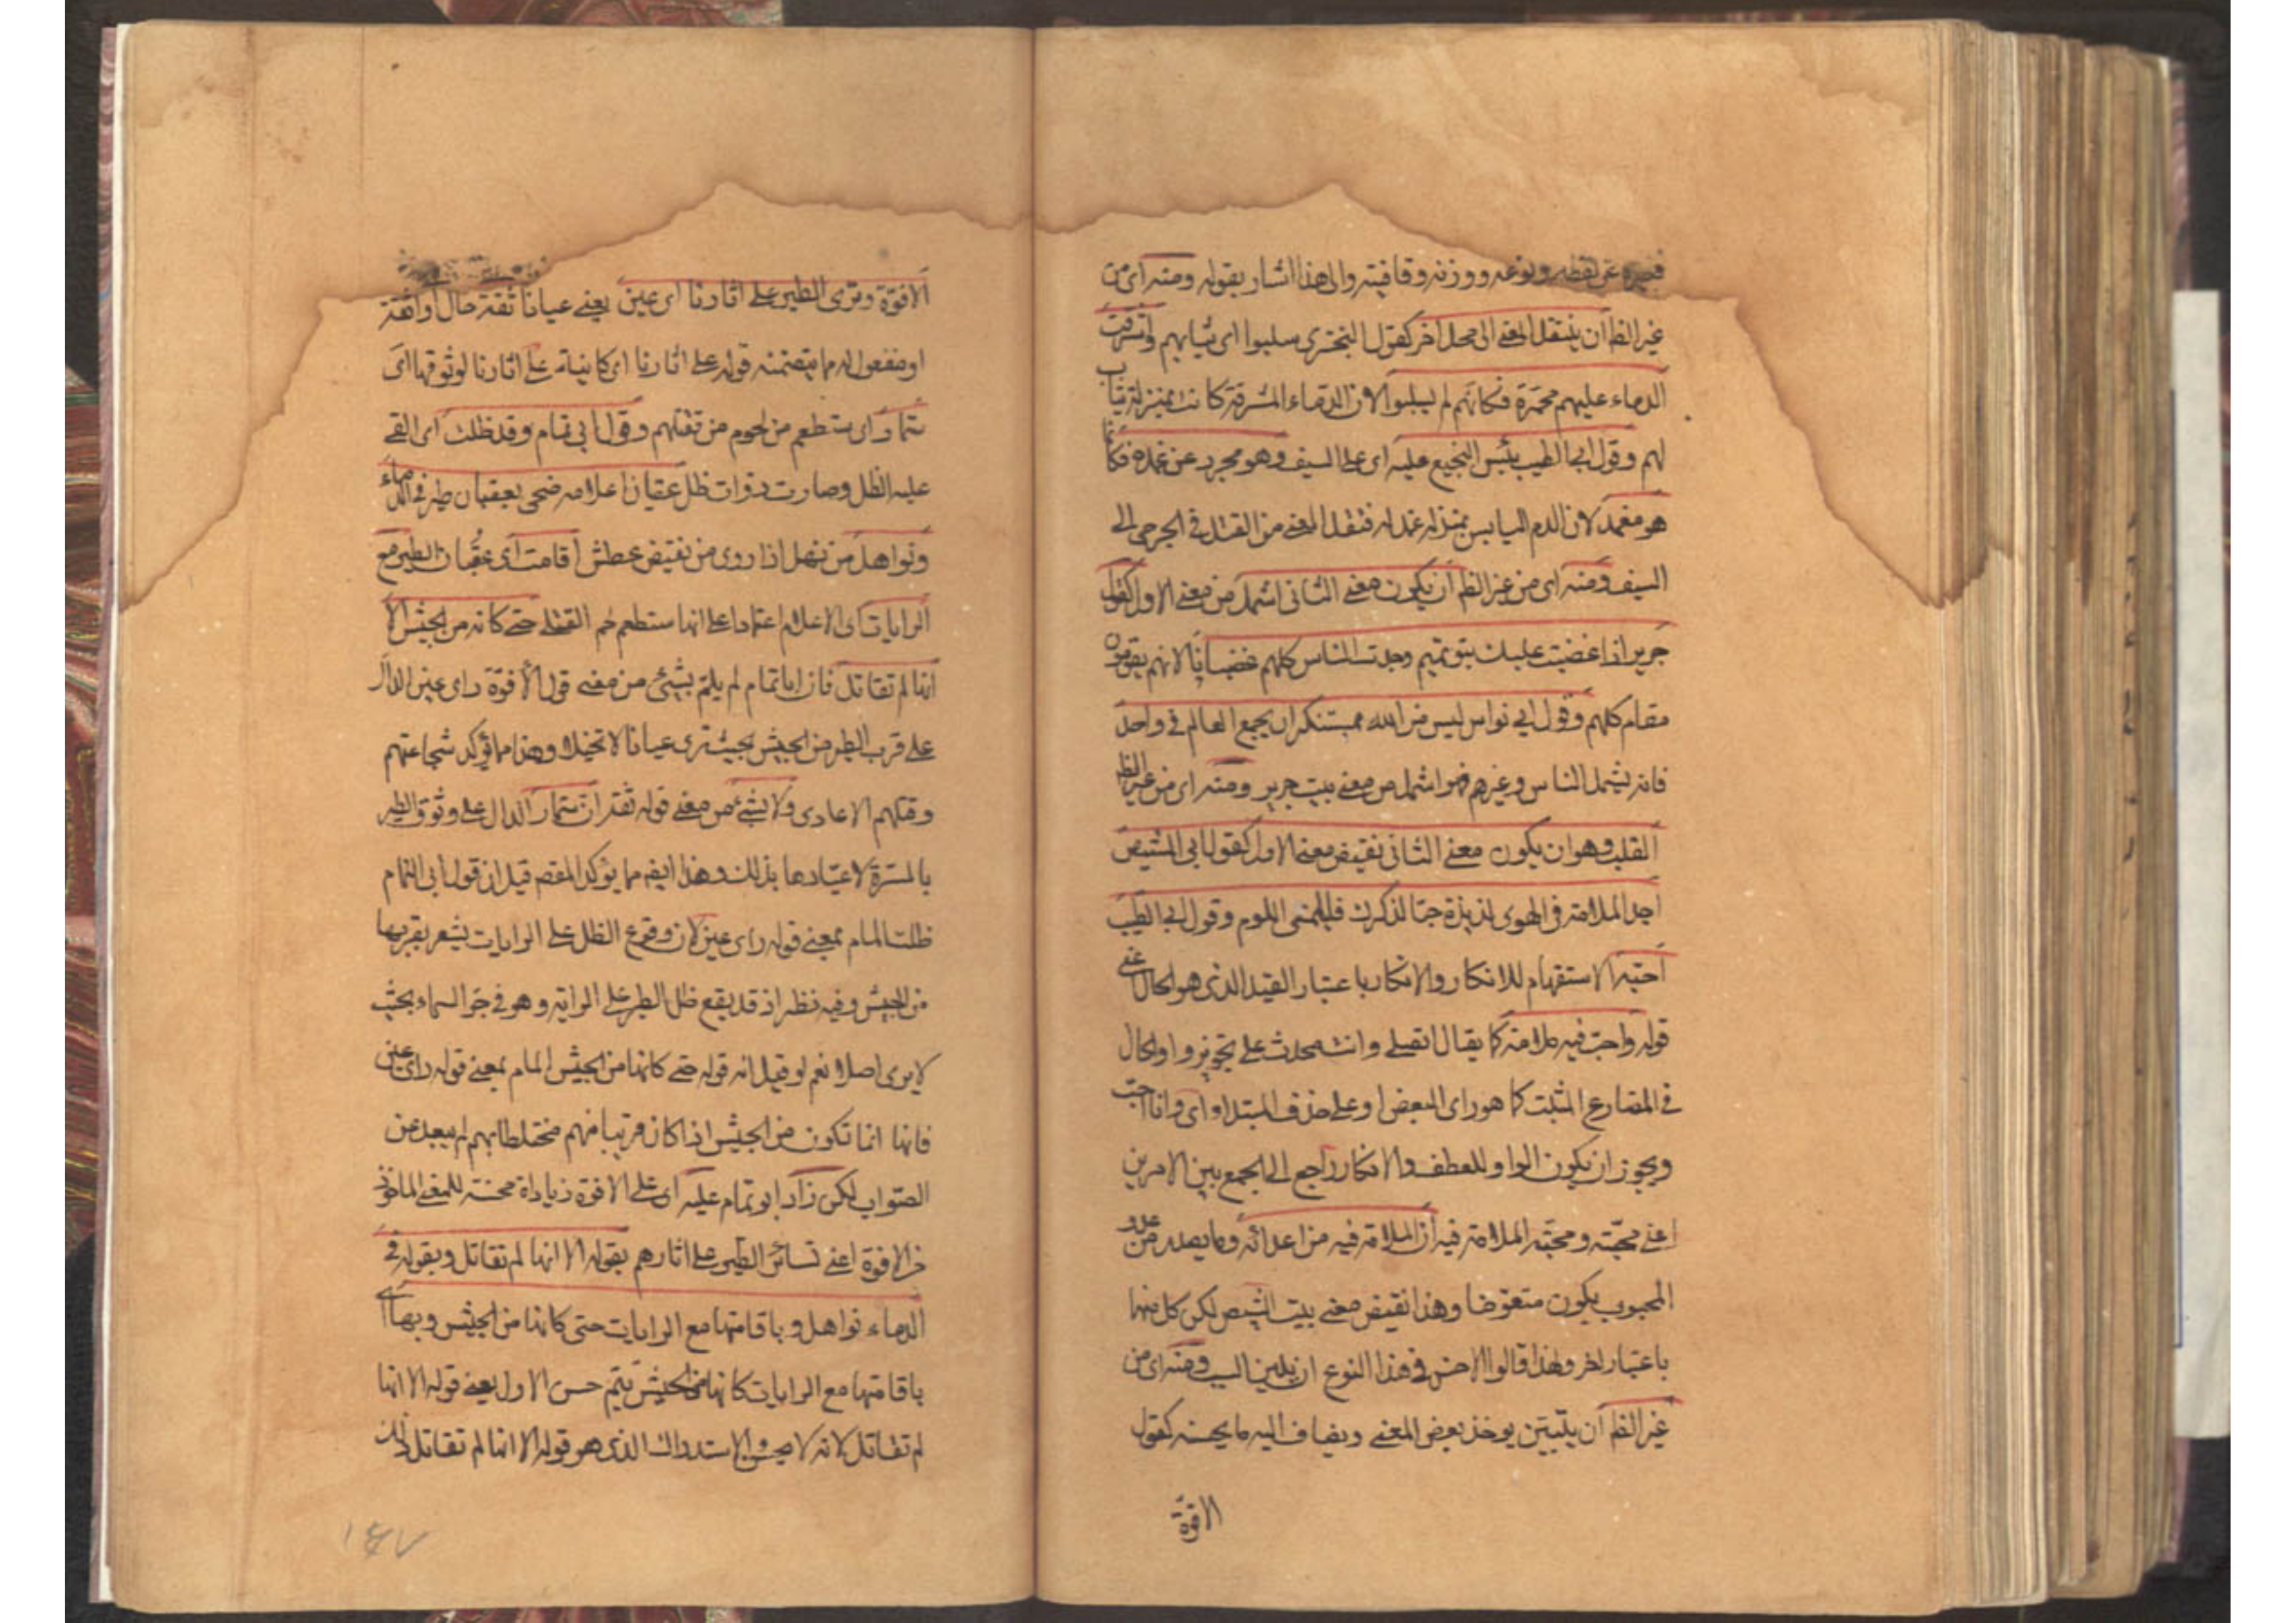 فغيره عن لفظه ونوعه ووزنه وقافيته والى هذا اشار بقوله ومنه اى من
غير الظ ان ينقل المعنى الى محل اخر كقول البحترى سلبوا اى ثيابهم واشرقت
الدماء عليهم محمرة فكانهم لم يسلبوا لان الدماء المشرقة كانت بمنزلة ثياب
لهم وقول ابى الطيب يبس النجيع عليه اى على السيف وهو مجرد عن غمده فكانما
هو مغمد لان الدم اليابس بمنزله غمد له فنقل المعنى من القتلى والجرحى الى
السيف ومنه اى من غير الظ ان يكون معنى الثانى اشمل من معنى الاول كقول
جرير اذا غضبت عليك بنو تميم وجدت الناس كلهم غضبانا لانهم يقومون
مقام كلهم وقول ابى نواس ليس من الله بمستنكر ان يجمع العالم فى واحد
فانه يشمل الناس وغيرهم فهو اشمل من معنى بيت جرير ومنه اى من غير الظ
القلب وهو ان يكون معنى الثانى نقيض معنى الاول كقول ابى الشيص
اجد الملامة فى الهوى لذيذة حبا لذكرك فليلمنى اللوم وقول ابى الطيب
احبه الاستفهام للانكار والانكار باعتبار القيد الذى هو الحال اعنى
قوله واحب فيه ملامة كما يقال اتصلى وانت محدث على تجويز واو الحال
فى المضارع المثبت كما هو راى البعض او على حذف المبتداء اى وانا احب
ويجوز ان يكون الواو للعطف والانكار راجع الى الجمع بين الامرين
اعنى محبته ومحبة الملامة فيه ان الملامة فيه من اعدائه وما يصدر من عدو
المحبوب يكون مبغوضا وهذا نقيض معنى بيت الشيص لكن كل منهما
باعتبار اخر ولهذا قالوا الاحسن فى هذا النوع ان يبين السبب ومنه اى من
غير الظ ان يتبين يوخذ بعض المعنى ويضاف اليه ما يحسنه كقول
الافوة
الافوة وترى الطير على اثارنا اى عين يعنى عيانا ثقة حال اى واثقة
او مفعول له مما يتضمنه قوله على اثارنا اى كاينة على اثارنا لوثوقها اى
ستمار اى ستطعم من لحوم من تقتلهم وقول ابى تمام وقد ظللت اى القى
عليه الظل وصارت ذوات ظل عقبان اعلامه ضحى بعقبان طير فى الدماء
ونواهل من نهل اذا روى من نقيض عطش اقامت اى عقبان الطير مع
الرايات اى الاعلام اعتمادا على انها ستطعم لحم القتلى حتى كانه من الجيش الا
انها لم تقاتل فان اباتمام لم يلم بشيئ من معنى قول الافوة راى عين الدال
على قرب الطير من الجيش بحيث ترى عيانا لا تخيلا وهذا مما يؤكد شجاعتهم
وقتلهم الاعادى ولا بشئ من معنى قوله ثقة ان ستمار الدال على وثوق الطير
بالمسرة لاعتيادها بذلك وهذا ايضا مما يؤكد المقصد قيل ان قول ابى التمام
ظللت المام بمعنى قوله راى عين لان وقوع الظل على الرايات يشعر بقربها
من الجيش وفيه نظر اذ قد يقع ظل الطير على الراية وهو فى جو السماء بحيث
لا يرى اصلا نعم لو قيل انه قوله حتى كانها من الجيش المام بمعنى قوله راى عين
فانها انما تكون من الجيش اذا كان قريبا منهم مختلطا بهم لم يبعد عن
الصواب لكن زاد ابو تمام عليه اى على الافوة زيادة محسنة للمعنى الماخوذ
من الافوة اعنى تساير الطير على اثارهم بقوله الا انها لم تقاتل وبقوله فى
الدماء نواهل وباقامتها مع الرايات حتى كانها من الجيش وبها اى
باقامتها مع الرايات كانها من الجيش يتم حسن الاول يعنى قوله الا انها
لم تقاتل لانه لا يحسن الاستدراك الذى هو قوله الا انها لم تقاتل ذلك